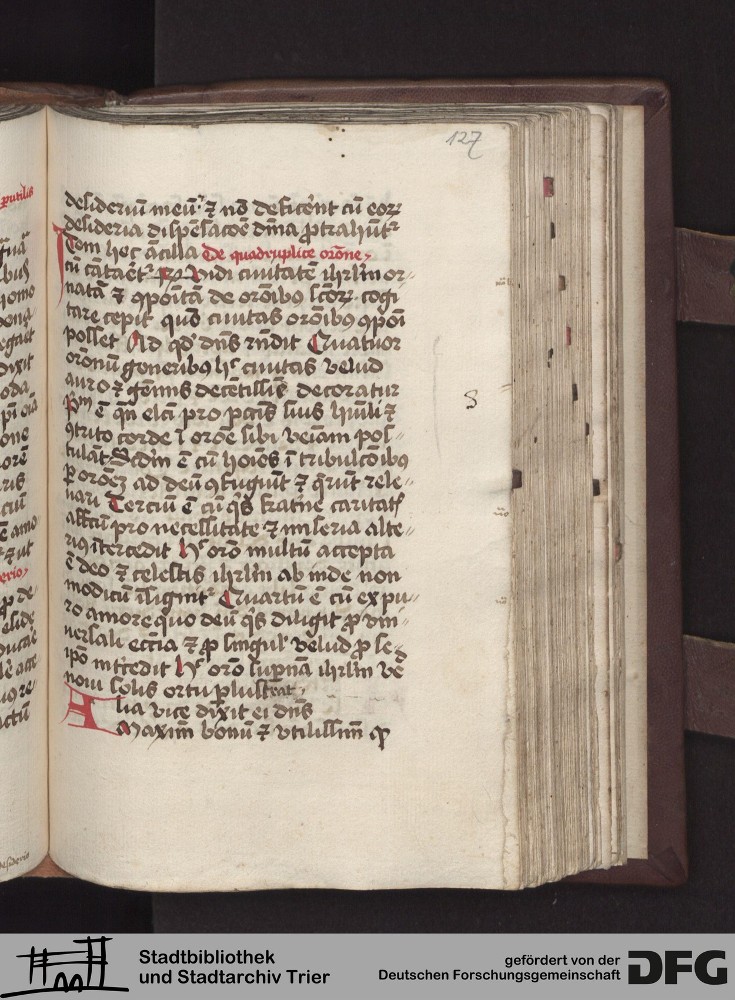 127
desideriū meū · ⁊ nō deficiēnt cū eoꝝ
desideria dispēsacōe dīna ꝓtrahūtʳ
Jtem hec ācilla De quadruplice orōne
cū cātaēt Vidi ciuitatē ihrlm̄ or-
natā ⁊ ꝯpoītā de orōibꝯ scōꝝ · cogi
tare cepit quō ciuitas orōibꝯ ꝯpoī
posset Ad qđ dn̄s rn̄dit Quatuor
oronū generibꝯ hͨ ciuitas velud
auro ⁊ gēmis decētissīe decoratur
Pm̄ ē qn̄ elcī pro pctīs suis hūili ⁊
ꝯtrito corde ī orōe sibi veīam pos-
tulāt Scdm̄ ē cū hoīes ī tribulcōibꝯ
ꝑ orōeꝫ ad deū ꝯfugiūt ⁊ q̄rūt rele-
uari Terciū ē cū qͥs fratīne caritatis
affctū pro necessitate ⁊ miseria alte-
riꝯ īt͛cedit hͨ orō multū accepta
ē deo ⁊ celestis ihrlm̄ ab inde non
modicū īsignitʳ Quartū ē cū ex pu-
ro amore quo deū qͥs diligit ꝓ vni-
uersali eccīa ⁊ ꝓ singul' velud ꝓ se
ipō int͛cedit hͨ orō supnā ihrlm̄ ve
noui solis ortu plustrat
Alia vice dixit ei dn̄s
Maxim̄ bonū ⁊ vtilissim̄ ꝙ
S
putilis
desiderio
Stadtbibliothek
und Stadtarchiv Trier
gefördert von der
Deutschen Forschungsgemeinschaft
DFG